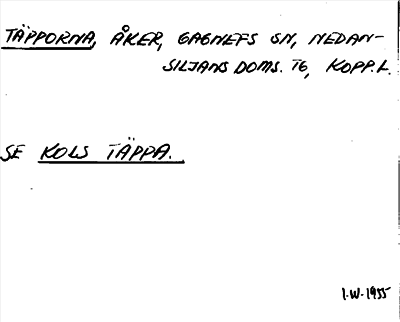 TÄPPORNA, ÅKER, GAGNEFS SN, NEDAN-
SILJANS DOMS. TG, KOPP. L.
SE KOLS TÄPPA.
I.W. 1955